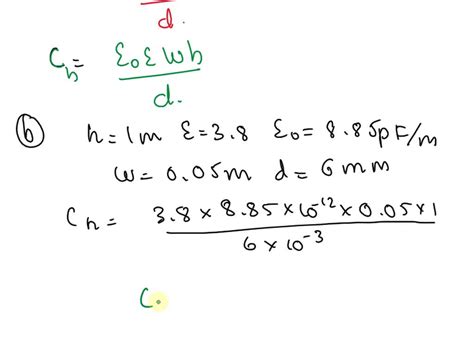 d.
C_h = ε₀ε wh
d.
(b) h=1m ε=3.8 ε₀= 8.85pF/m
w= 0.05m d= 6mm
C_h = 3.8 × 8.85×10⁻¹² × 0.05×1
6 × 10⁻³
C